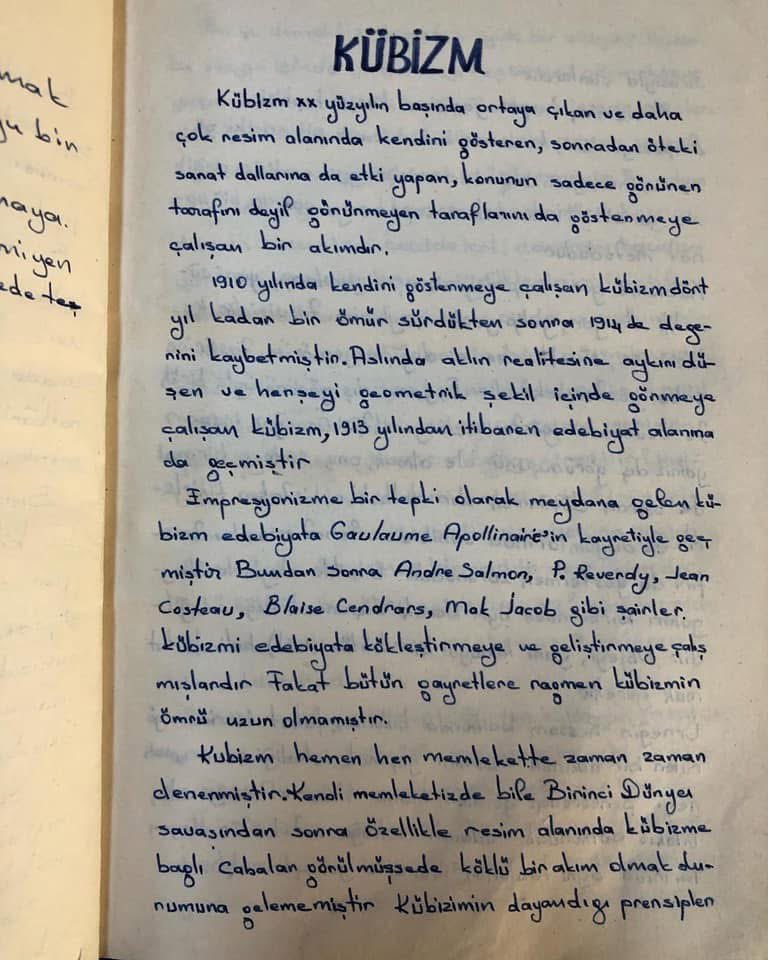 mak
ğu bin
maya.
miyen
ede teş
KÜBİZM
Kübizm xx yüzyılın başında ortaya çıkan ve daha
çok resim alanında kendini gösteren, sonradan öteki
sanat dallarına da etki yapan, konunun sadece görünen
tarafını deyil görünmeyen taraflarını da göstermeye
çalışan bir akımdır.
1910 yılında kendini göstermeye çalışan kübizm dört
yıl kadar bir ömür sürdükten sonra 1914 de değe-
rini kaybetmiştir. Aslında aklın realitesine aykırı dü-
şen ve herşeyi geometrik şekil içinde görmeye
çalışan kübizm, 1913 yılından itibaren edebiyat alanına
da geçmiştir
Impresyonizme bir tepki olarak meydana gelen kü-
bizm edebiyata Gaulaume Apollinaire'in kayretiyle geç
miştir Bundan sonra Andre Salmon, P. Reverdy, Jean
Costeau, Blaise Cendrars, Mak Jacob gibi şairler.
kübizmi edebiyata kökleştirmeye ve geliştirmeye çalış
mışlardır Fakat bütün gayretlere rağmen kübizmin
ömrü uzun olmamıştır.
Kubizm hemen her memlekette zaman zaman
denenmiştir. Kendi memleketizde bile Birinci Dünya
savaşından sonra özellikle resim alanında kübizme
bağlı Cabalar görülmüşsede köklü bir akım olmak du-
rumuna gelememiştir Kübizimin dayandığı prensipler